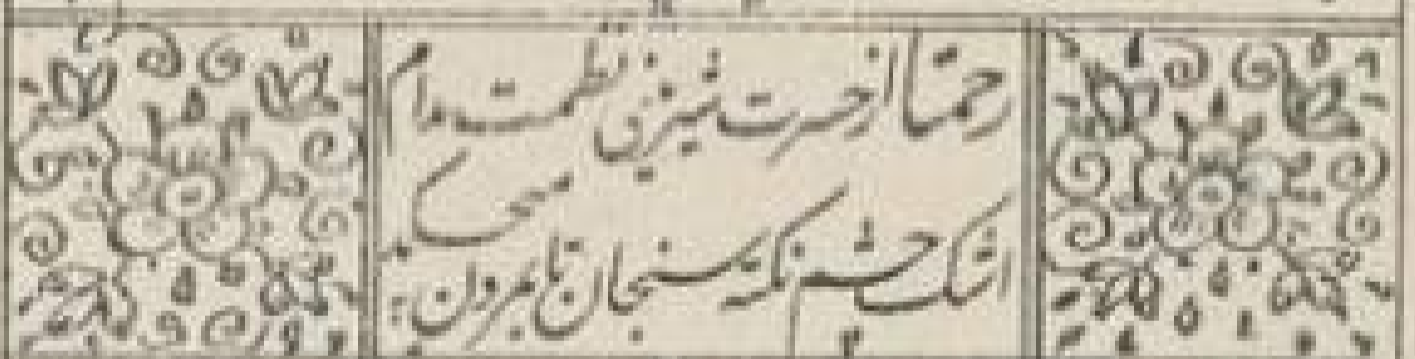 رحمتا از حسرت شیرینی نظمت مدام
اشک چشم نکته سنجان تا بمرون میچکد